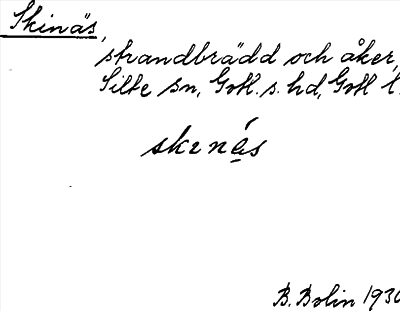 Skinäs,
strandbrädd och åker,
Silte sn, Gotl. s. hd, Gotl l.
skɪnás
B. Bolin 1930